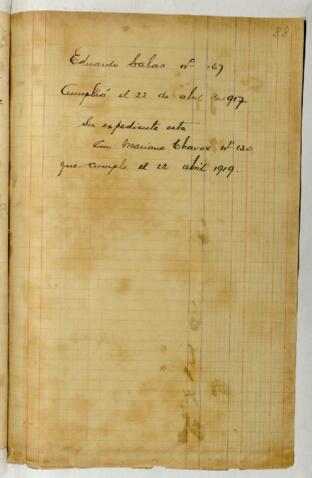 38
Eduardo Salas nº 167
Cumplió el 22 de abril de 1917
Su expediente esta
Con Mariano Chavez nº 130
que cumple el 22 abril 1919.